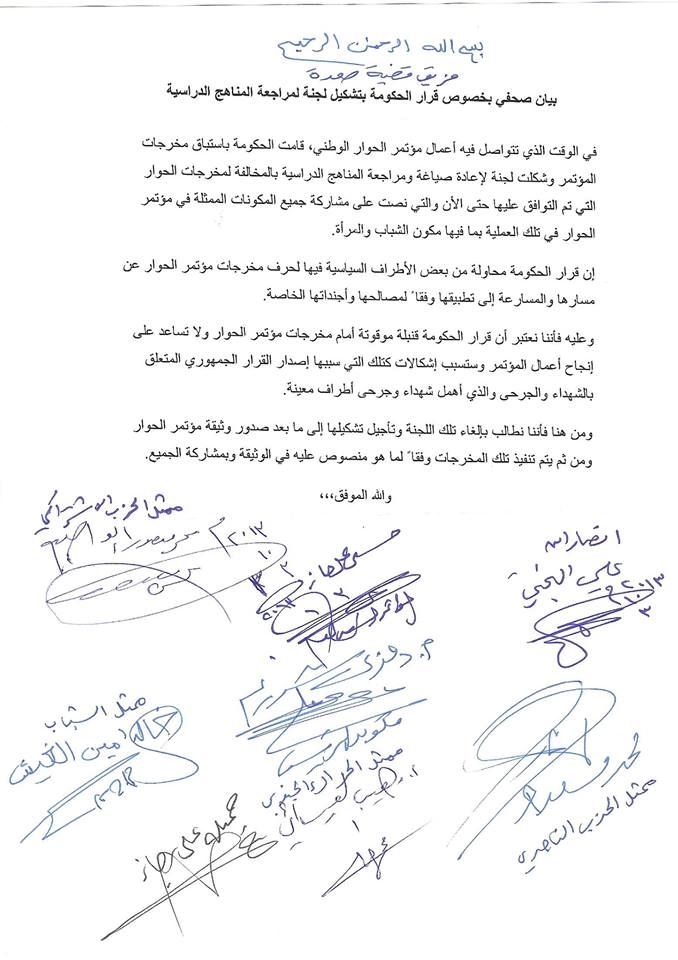 بسم الله الرحمن الرحيم
فريق قضية صعدة
بيان صحفي بخصوص قرار الحكومة بتشكيل لجنة لمراجعة المناهج الدراسية
في الوقت الذي تتواصل فيه أعمال مؤتمر الحوار الوطني، قامت الحكومة باستباق مخرجات
المؤتمر وشكلت لجنة لإعادة صياغة ومراجعة المناهج الدراسية بالمخالفة لمخرجات الحوار
التي تم التوافق عليها حتى الأن والتي نصت على مشاركة جميع المكونات الممثلة في مؤتمر
الحوار في تلك العملية بما فيها مكون الشباب والمرأة.
إن قرار الحكومة محاولة من بعض الأطراف السياسية فيها لحرف مخرجات مؤتمر الحوار عن
مسارها والمسارعة إلى تطبيقها وفقاً لمصالحها وأجنداتها الخاصة.
وعليه فأننا نعتبر أن قرار الحكومة قنبلة موقوتة أمام مخرجات مؤتمر الحوار ولا تساعد على
إنجاح أعمال المؤتمر وستسبب إشكالات كتلك التي سببها إصدار القرار الجمهوري المتعلق
بالشهداء والجرحى والذي أهمل شهداء وجرحى أطراف معينة.
ومن هنا فأننا نطالب بإلغاء تلك اللجنة وتأجيل تشكيلها إلى ما بعد صدور وثيقة مؤتمر الحوار
ومن ثم يتم تنفيذ تلك المخرجات وفقاً لما هو منصوص عليه في الوثيقة وبمشاركة الجميع.
والله الموفق،،،
ممثل الحزب الاشتراكي
٢٠١٣م
انصار الله
علي البخيتي
٢٠١٣
ممثل الشباب
امين الكثيف
ممثل الحراك الجنوبي
جميلة علي رجاء
محمد مسعد
ممثل الحزب الناصري